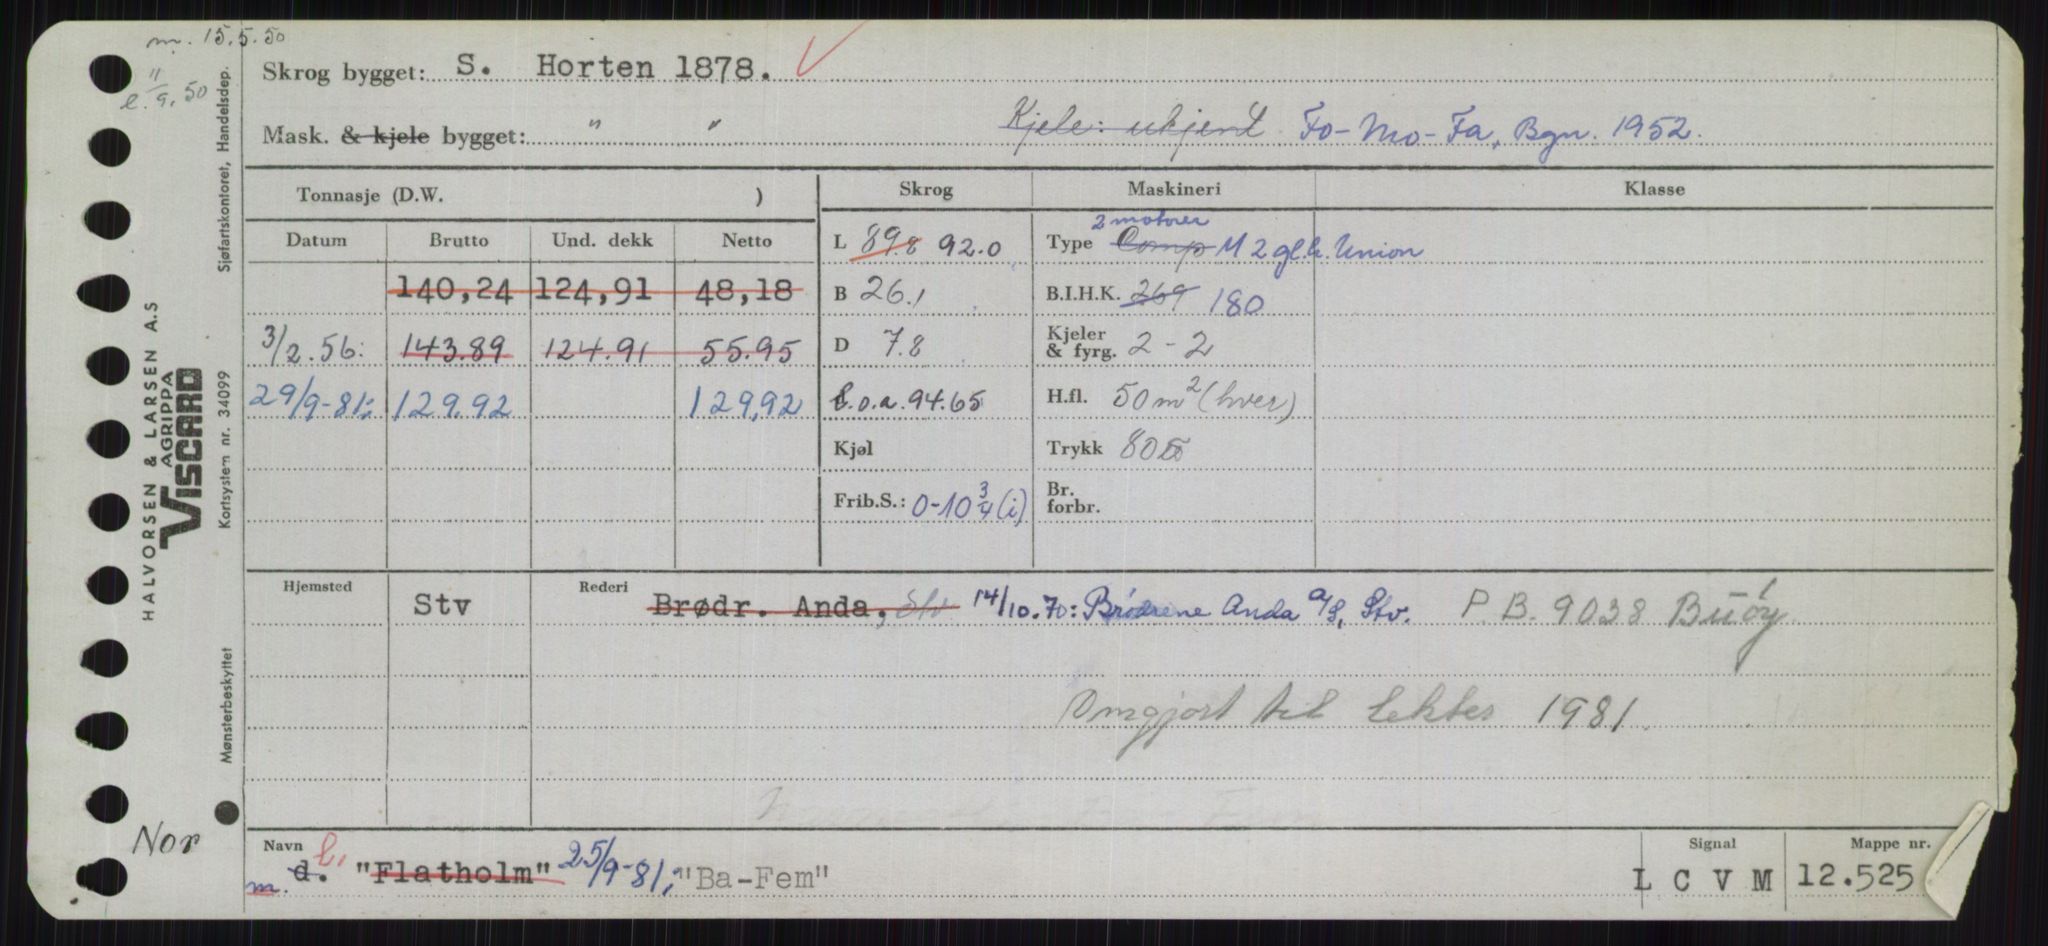 m. 15.5.50
l. 11/9.50
Skrog bygget: S. Horten 1878.
Mask. & kjele bygget: " " Kjele: ukjent. Fo-Mo-Fa, Bgn. 1952.
Tonnasje (D.W. ) Skrog Maskineri Klasse
Datum Brutto Und. dekk Netto
L 89.8 92.0 Type 2 motorer Comp M 2 gl.h. Union
140,24 124,91 48,18 B 26.1 B.I.H.K. 269 180
3/2.56: 143.89 124.91 55.95 D 7.8 Kjeler & fyrg. 2-2
29/9-81: 129,92 129,92 l.o.a. 94.65 H.fl. 50 m² (hver)
Kjøl Trykk 80
Frib.S.: 0-10 3/4 (i) Br. forbr.
Hjemsted Stv Rederi Brødr. Anda, Stv 14/10.70: Brødrene Anda a/s, Stv. P.B. 9038 Buøy
Omgjort til lekter 1981
Navn Signal Mappe nr.
m. d. l. "Flatholm" 25/9-81: "Ba-Fem" L C V M 12.525
Nor
HALVORSEN & LARSEN A.S
AGRIPPA
VISCARD
Mønsterbeskyttet Kortsystem nr. 34099 Sjøfartskontoret, Handelsdep.